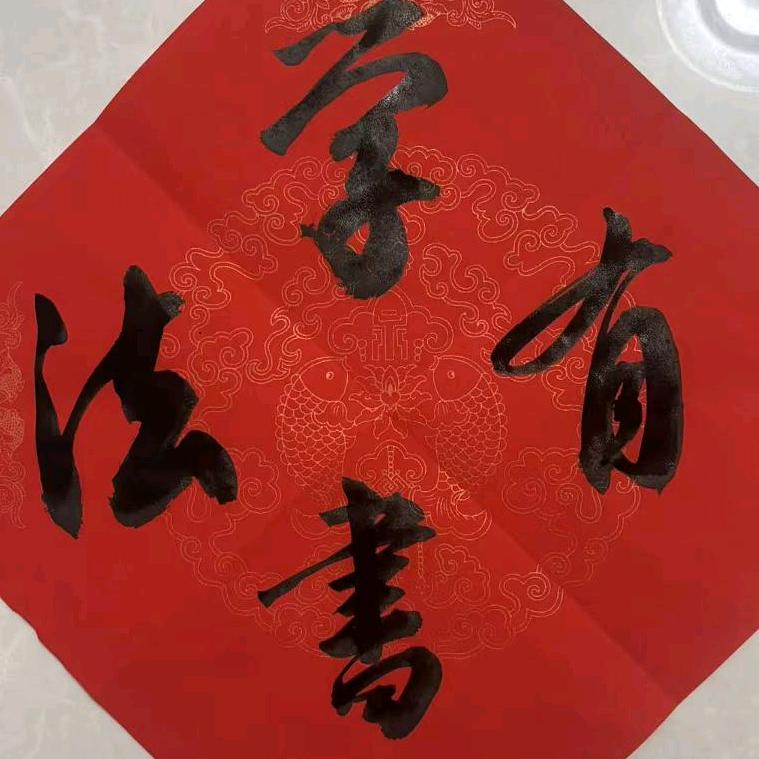 学
書
有
法